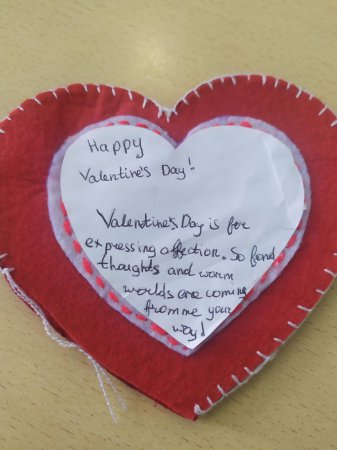 Happy
Valentine's Day!
Valentine's Day is for
expressing affection. So fond
thoughts and warm
worlds are coming
from me your
way!